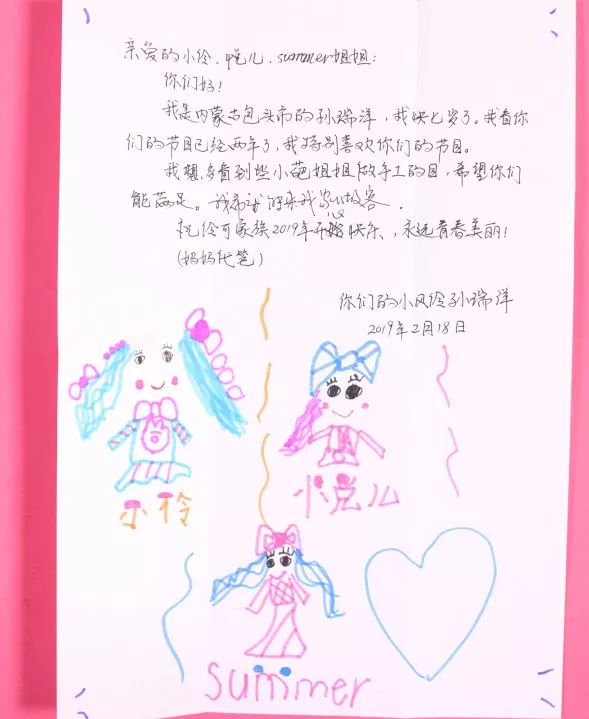 亲爱的小伶、悦儿、summer姐姐:
你们好!
我是内蒙古包头市的孙瑞洋,我快七岁了。我看你
们的节目已经两年了,我特别喜欢你们的节目。
我想多看到些小葩姐姐做手工的目,希望你们
能满足。我希 你来我家做客.
祝伶可家族2019年开心快乐、永远青春美丽!
(妈妈代笔)
你们的小风伶孙瑞洋
2019年2月18日
小伶
小悦儿
summer